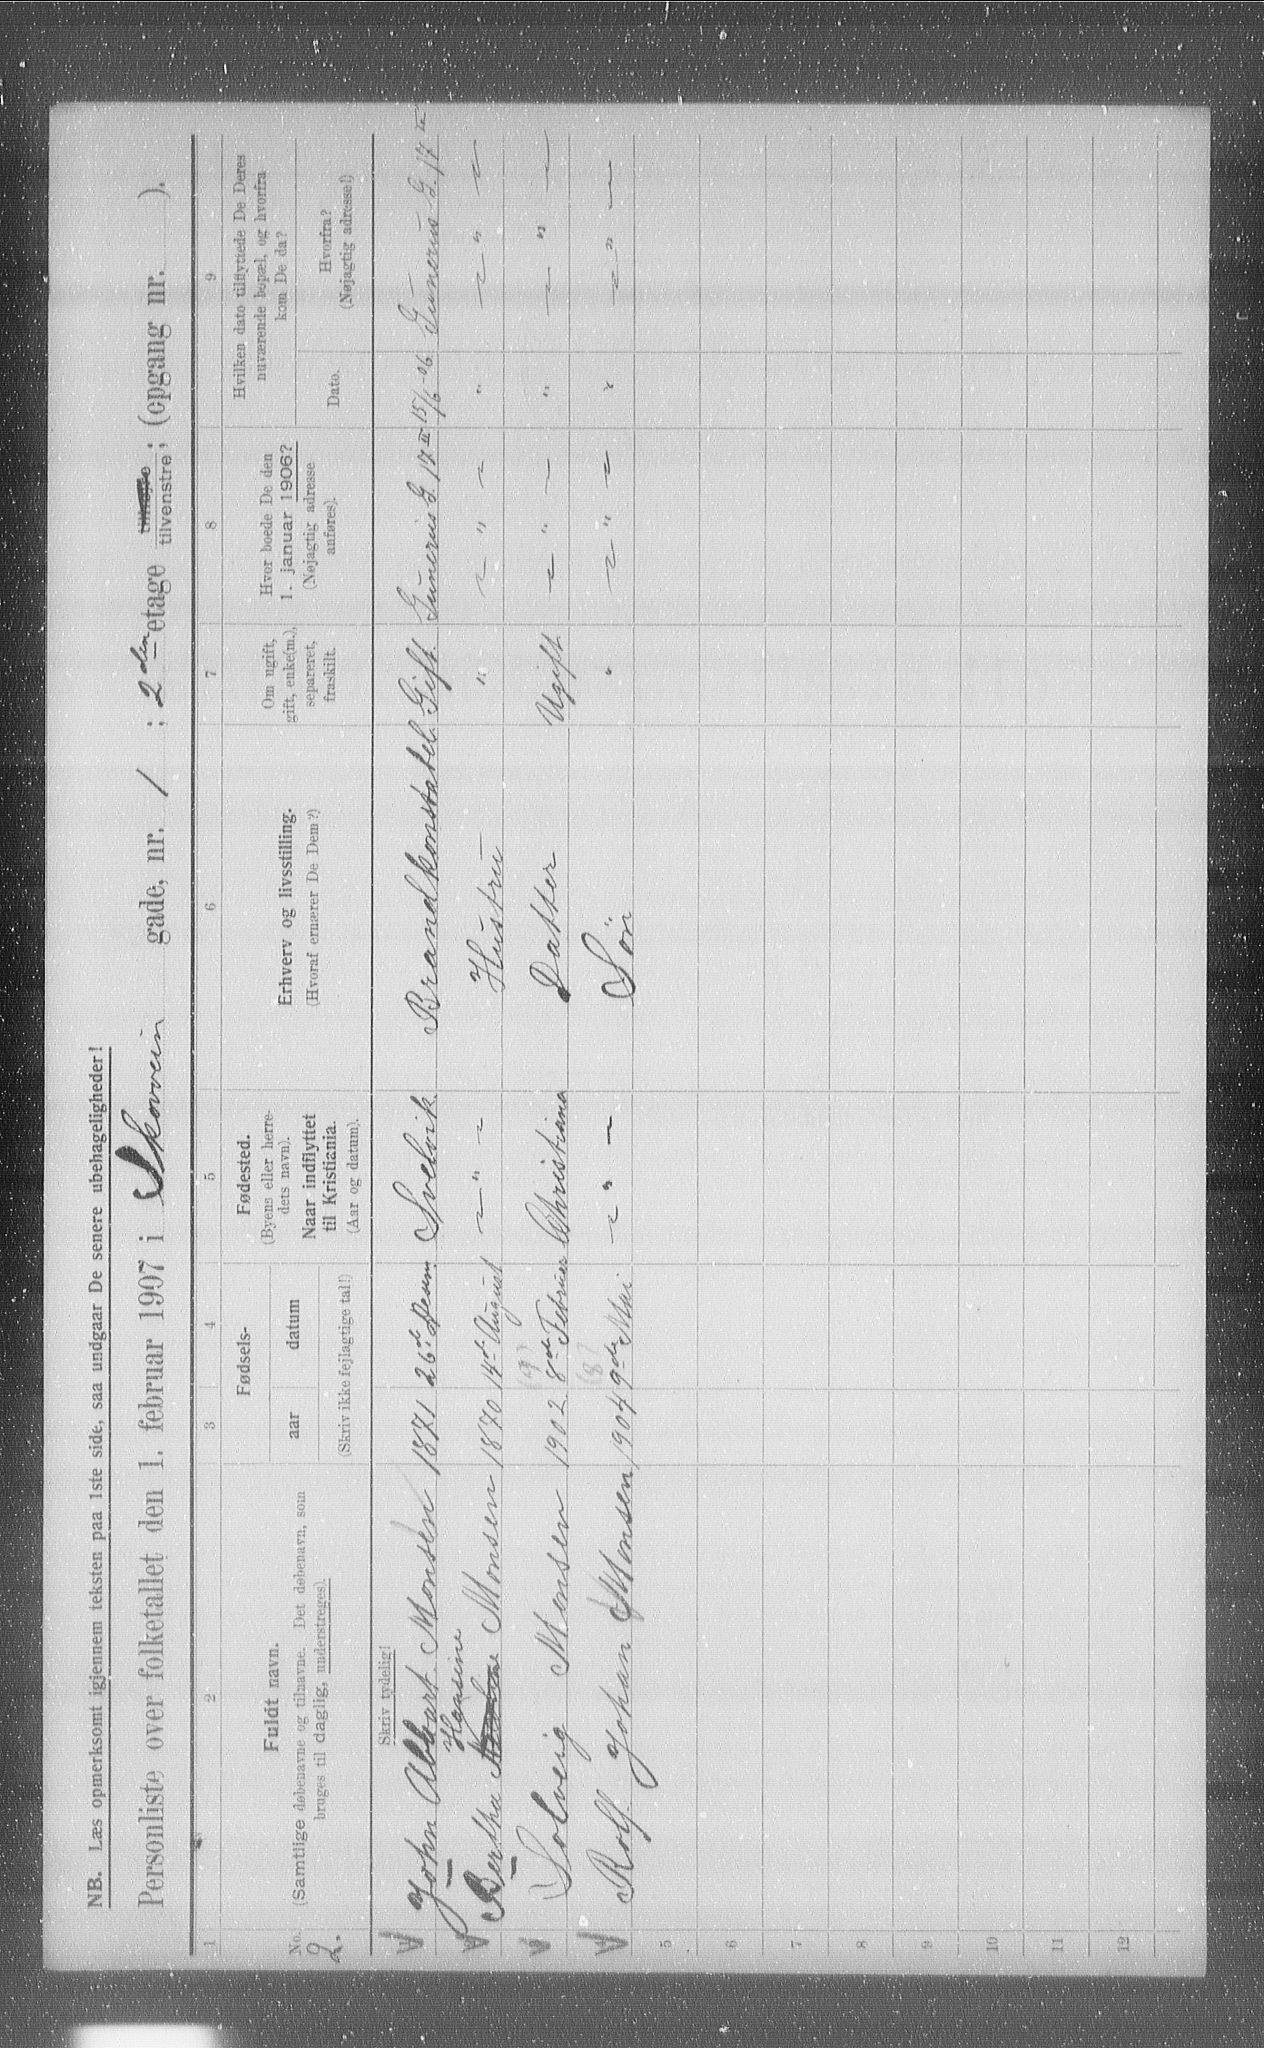 NB. Læs opmerksomt igjennem teksten paa 1ste side, saa undgaar De senere ubehageligheder!
Personliste over folketallet den 1. februar 1907 i Skovvein gade, nr. 1; 2den etage tilhøjre tilvenstre; (opgang nr. ).
1 2 3 4 5 6 7 8 9
No. 2.
Fuldt navn.
(Samtlige døbenavne og tilnavne. Det døbenavn, som
bruges til daglig, understreges).
Skriv tydelig!
Fødsels-
aar datum
(Skriv ikke fejlagtige tal!)
Fødested.
(Byens eller herre-
dets navn).
Naar indflyttet
til Kristiania.
(Aar og datum).
Erhverv og livsstilling.
(Hvoraf ernærer De Dem?)
Om ugift,
gift, enke(m.),
separeret,
fraskilt.
Hvor boede De den
1. januar 1906?
(Nøjagtig adresse
anføres).
Hvilken dato tilflyttede De Deres
nuværende bopæl, og hvorfra
kom De da?
Dato.
Hvorfra?
(Nøjagtig adresse!)
John Abkart Monsen 1871 26de Desem. Svelvik Brandkonstabel Gift Gunerius G 17 III 15/6-06. Gunerius G. 17 III
Hansine
Bertha Monsen 1870 14de August — " — Hustru " — " — " — " —
(9)
Solveig Monsen 1902 8de Februar Christiania Datter Ugift — " — " — " —
(8)
Rolf Johan Monsen 1904 9de Mai — " — Søn " — " — " — " —
5
6
7
8
9
10
11
12